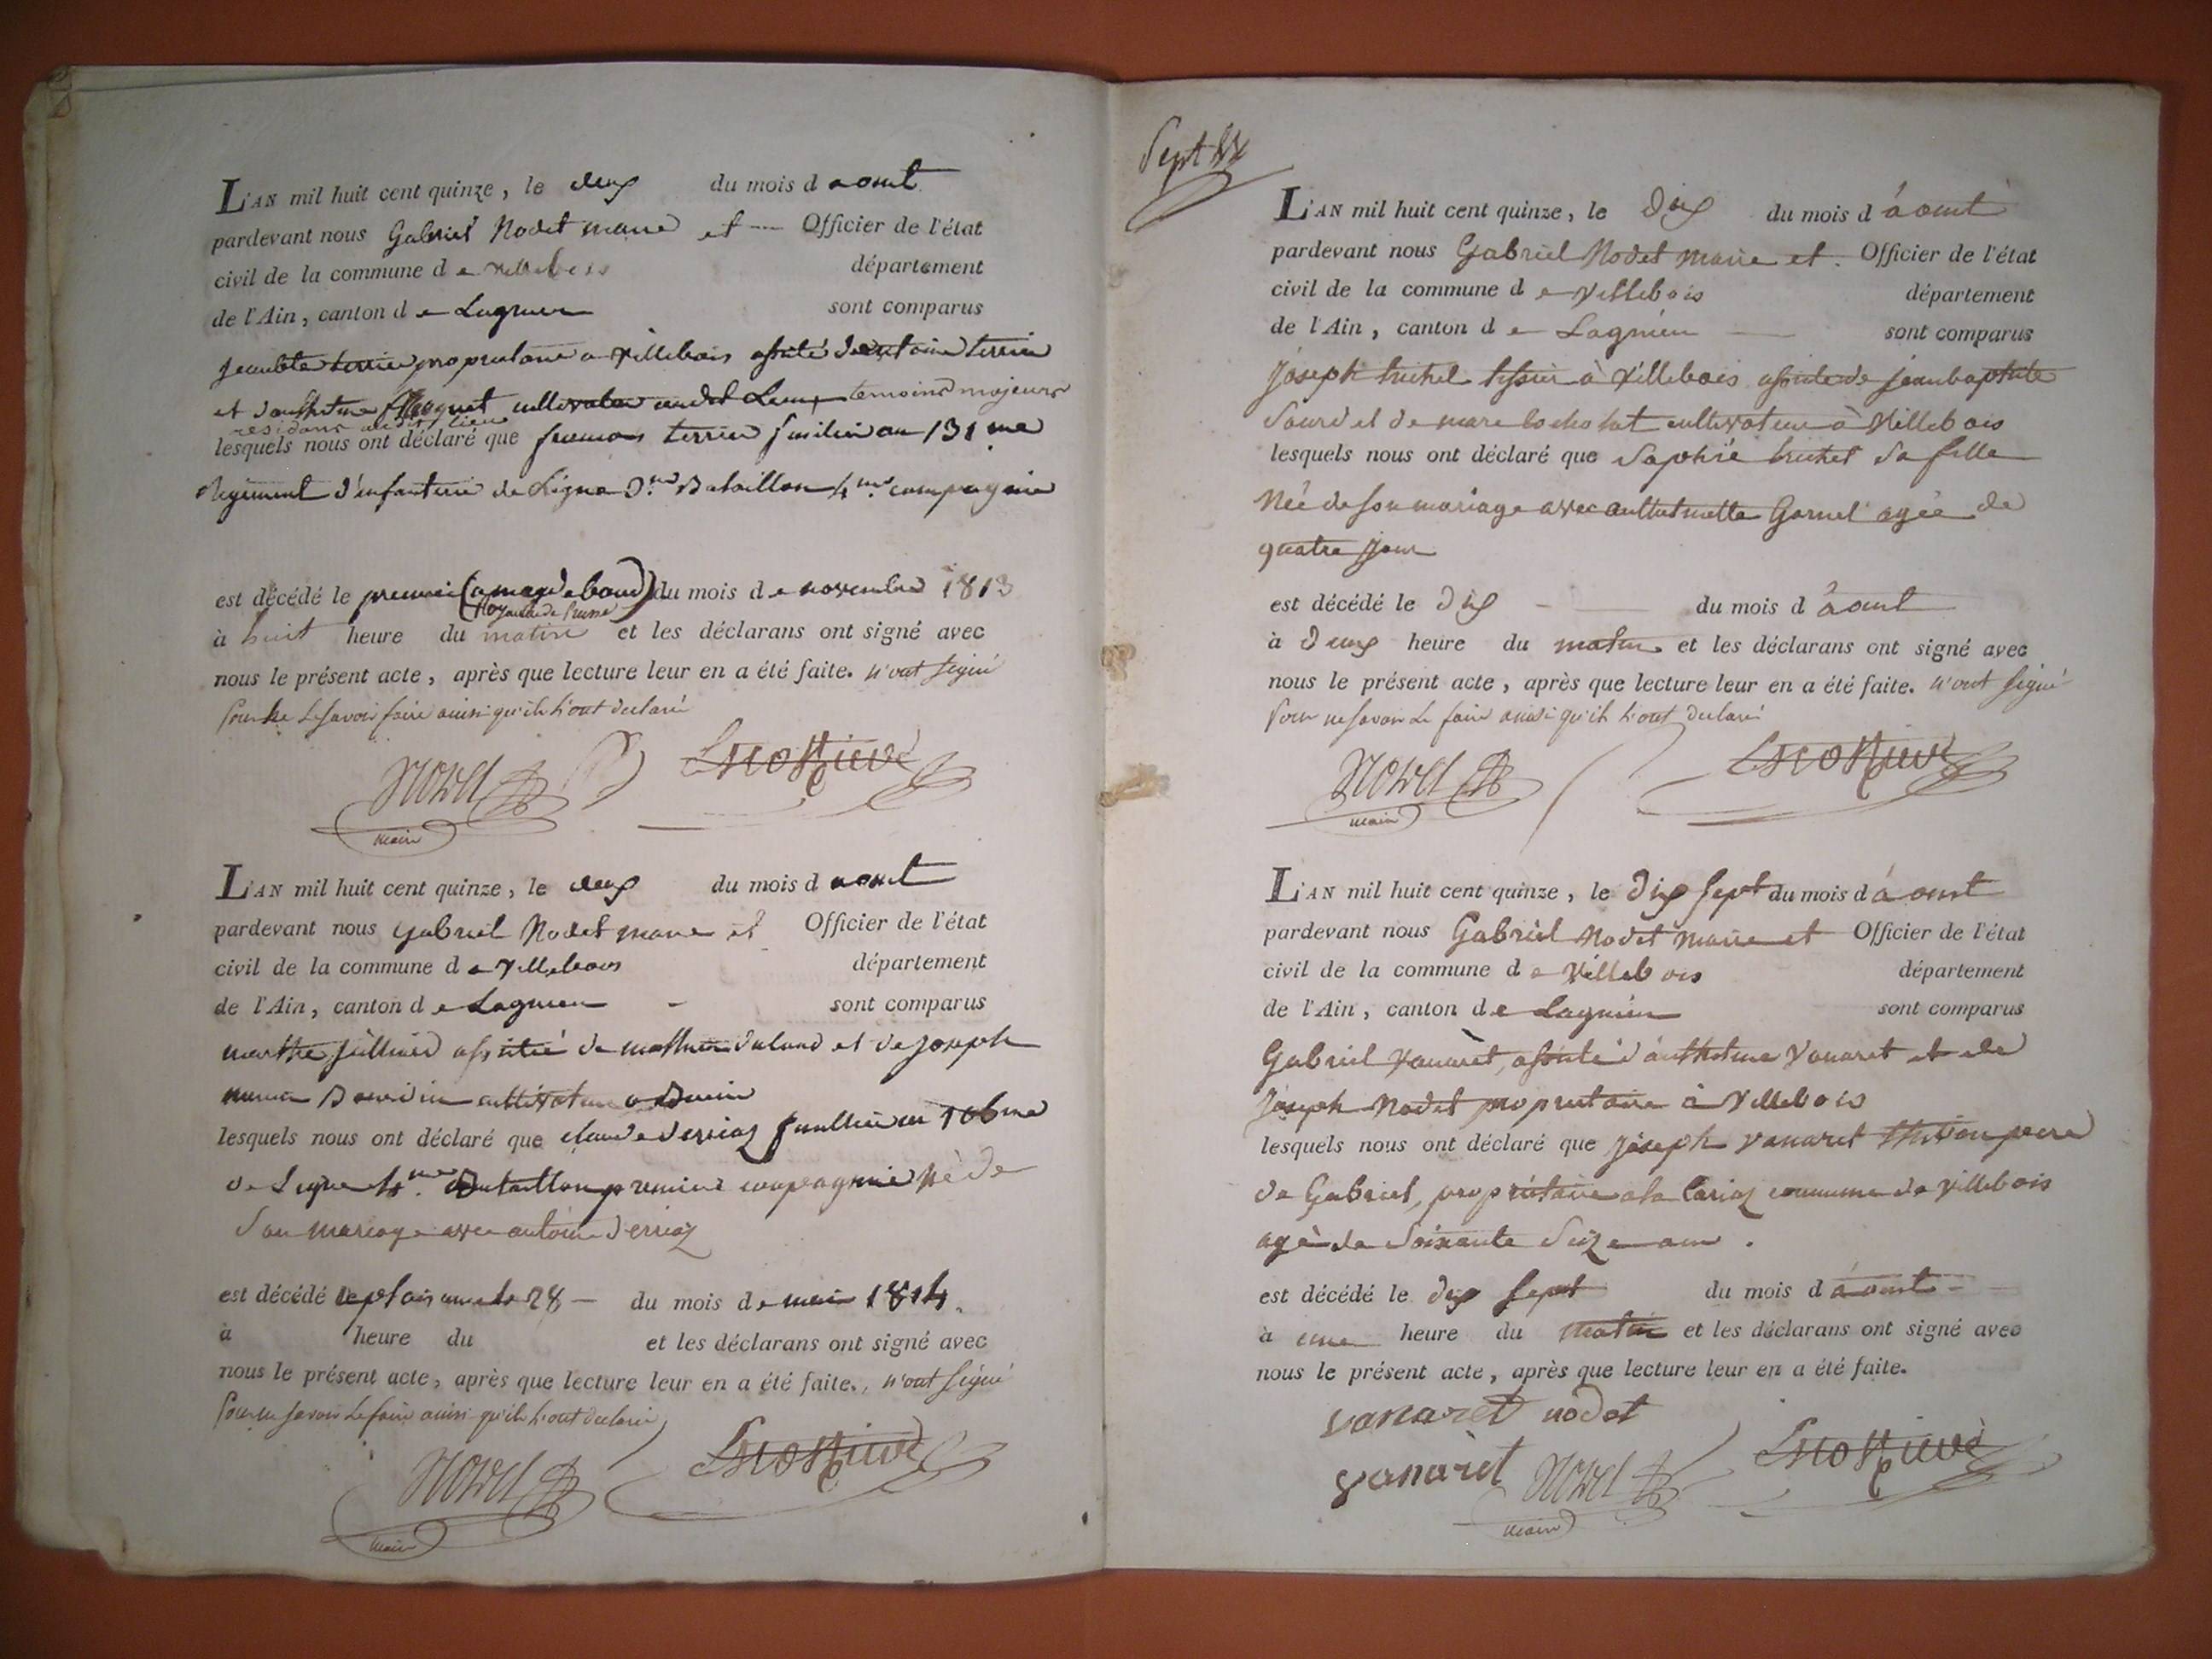 L'AN mil huit cent quinze, le deux du mois d aout
pardevant nous Gabriel Nodet maire et Officier de l'état
civil de la commune d e villebois département
de l'Ain, canton d e Lagnieu sont comparus
jeanbte terrier proprietaire a villebois assisté d'antoine terrier
et d'anthelme cultivateur audit Lieu, temoins majeurs
residans audit lieu
lesquels nous ont déclaré que terrier fusilier au 131 me
Regiment d'enfanterie de Ligne 3.me Bataillon 4me compagnie
est décédé le premier (a magdebourd) du mois d e novembre 1813
Royaume de Prusse
à huit heure du matin et les déclarans ont signé avec
nous le présent acte, après que lecture leur en a été faite. n'ont signé
pour ne le savoir faire ainsi qu'ils l'ont declaré
Nodet
maire
L'AN mil huit cent quinze, le deux du mois d aout
pardevant nous gabriel Nodet maire et Officier de l'état
civil de la commune d e villebois département
de l'Ain, canton d e Lagnieu sont comparus
marthe assitée de et de joseph
cultivateur a
lesquels nous ont déclaré que claude derriaz fusillier au 106me
de Ligne 4me Bataillon premiere compagnie né de
son mariage avec antoine derriaz
est décédé le 28 du mois d e mai 1814.
à heure du et les déclarans ont signé avec
nous le présent acte, après que lecture leur en a été faite., n'ont signé
pour ne savoir le faire ainsi qu'ils l'ont declaré
Nodet
maire
Sept
L'AN mil huit cent quinze, le Dix du mois d 'aout
pardevant nous Gabriel Nodet maire et Officier de l'état
civil de la commune d e villebois département
de l'Ain, canton d e Lagnieu sont comparus
joseph trichet tissier à villebois assisté de jeanbaptiste
Sourd et de marc cultivateur à villebois
lesquels nous ont déclaré que Sophie trichet Sa fille
Née de son mariage avec anthelmette Garnel agée de
quatre jour
est décédé le Dix du mois d 'aout
à Deux heure du matin et les déclarans ont signé avec
nous le présent acte, après que lecture leur en a été faite. n'ont signé
pour ne savoir le faire ainsi qu'ils l'ont declaré
Nodet
maire
L'AN mil huit cent quinze, le Dix sept du mois d 'aout
pardevant nous Gabriel Nodet maire et Officier de l'état
civil de la commune d e villebois département
de l'Ain, canton d e Lagnieu sont comparus
Gabriel vanaret, assisté d'anthelme vanaret et de
joseph Nodet propriétaire à villebois
lesquels nous ont déclaré que joseph vanaret pere
de Gabriel, propriétaire a la commune de villebois
agé de Soixante Seize ans.
est décédé le dix sept du mois d 'aout
à une heure du matin et les déclarans ont signé avec
nous le présent acte, après que lecture leur en a été faite.
vanaret nodet
vanaret Nodet
maire